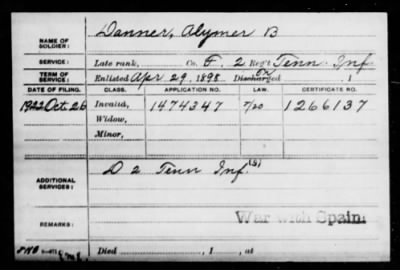 NAME OF SOLDIER: Danner, Alymer B
SERVICE: Late rank, Co. F, 2 Reg't Tenn Inf
TERM OF SERVICE: Enlisted Apr 29, 1898 Discharged , 1
DATE OF FILING. CLASS. APPLICATION NO. LAW. CERTIFICATE NO.
1922 Oct. 26 Invalid, 1474347 1266137
Widow,
Minor,
ADDITIONAL SERVICES: D 2 Tenn Inf.
War with Spain.
REMARKS:
Died , 1 , at